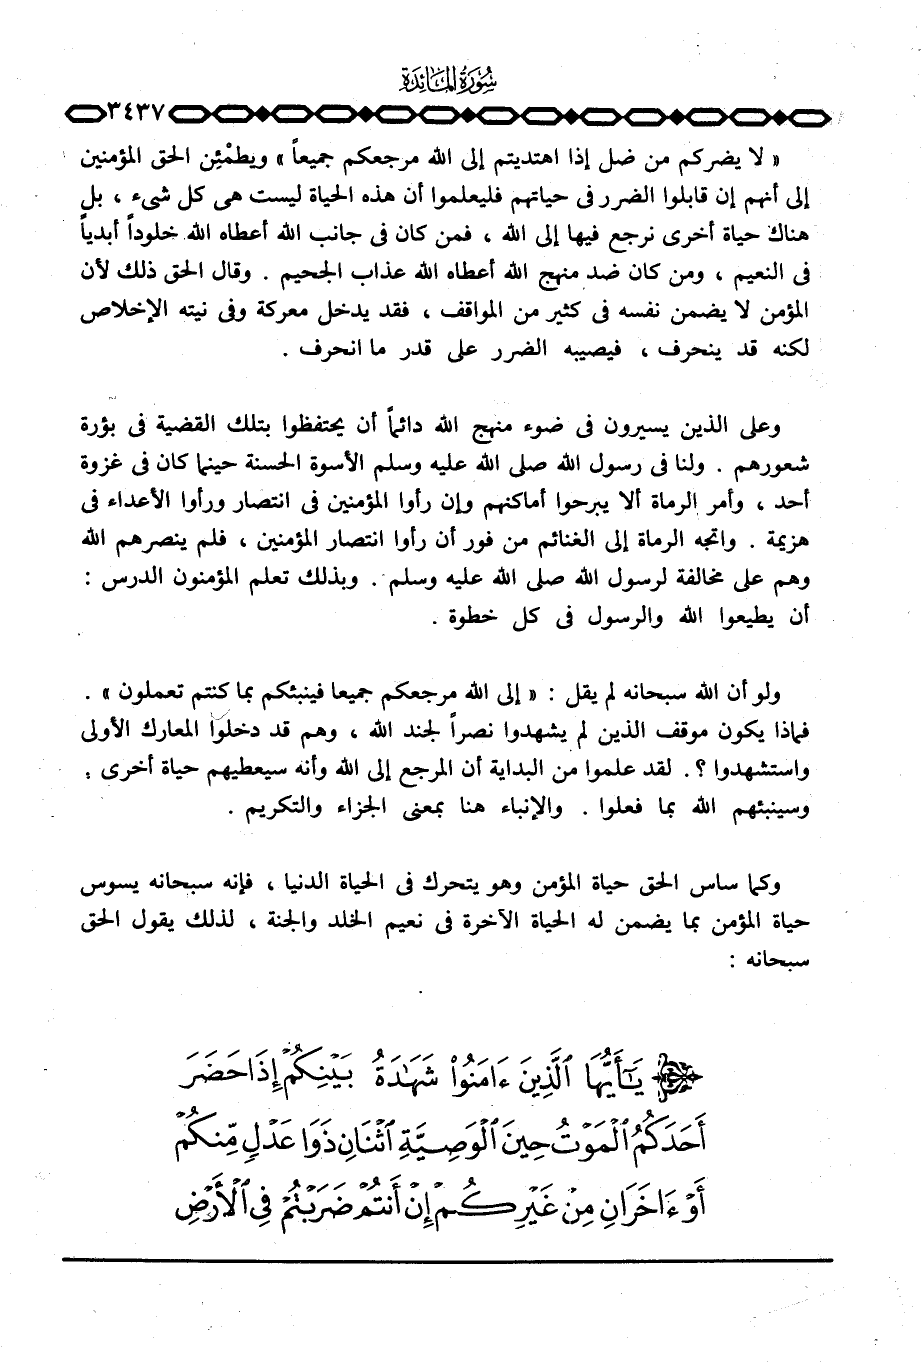 سُورَةُ المَائِدَة
٣٤٣٧
« لا يضركم من ضل إذا اهتديتم إلى الله مرجعكم جميعاً » ويطمْئِن الحق المؤمنين
إلى أنهم إن قابلوا الضرر فى حياتهم فليعلموا أن هذه الحياة ليست هى كل شىء ، بل
هناك حياة أخرى نرجع فيها إلى الله ، فمن كان فى جانب الله أعطاه الله خلوداً أبدياً
فى النعيم ، ومن كان ضد منهج الله أعطاه الله عذاب الجحيم . وقال الحق ذلك لأن
المؤمن لا يضمن نفسه فى كثير من المواقف ، فقد يدخل معركة وفى نيته الإخلاص
لكنه قد ينحرف ، فيصيبه الضرر على قدر ما انحرف .
وعلى الذين يسيرون فى ضوء منهج الله دائماً أن يحتفظوا بتلك القضية فى بؤرة
شعورهم . ولنا فى رسول الله صلى الله عليه وسلم الأسوة الحسنة حينما كان فى غزوة
أحد ، وأمر الرماة ألا يبرحوا أماكنهم وإن رأوا المؤمنين فى انتصار ورأوا الأعداء فى
هزيمة . واتجه الرماة إلى الغنائم من فور أن رأوا انتصار المؤمنين ، فلم ينصرهم الله
وهم على مخالفة لرسول الله صلى الله عليه وسلم . وبذلك تعلم المؤمنون الدرس :
أن يطيعوا الله والرسول فى كل خطوة .
ولو أن الله سبحانه لم يقل : « إلى الله مرجعكم جميعا فينبئكم بما كنتم تعملون » .
فماذا يكون موقف الذين لم يشهدوا نصراً لجند الله ، وهم قد دخلوا المعارك الأولى
واستشهدوا ؟. لقد علموا من البداية أن المرجع إلى الله وأنه سيعطيهم حياة أخرى ,
وسينبئهم الله بما فعلوا . والإنباء هنا بمعنى الجزاء والتكريم .
وكما ساس الحق حياة المؤمن وهو يتحرك فى الحياة الدنيا ، فإنه سبحانه يسوس
حياة المؤمن بما يضمن له الحياة الآخرة فى نعيم الخلد والجنة ، لذلك يقول الحق
سبحانه :
يَٰٓأَيُّهَا ٱلَّذِينَ ءَامَنُوا۟ شَهَٰدَةُ بَيْنِكُمْ إِذَا حَضَرَ
أَحَدَكُمُ ٱلْمَوْتُ حِينَ ٱلْوَصِيَّةِ ٱثْنَانِ ذَوَا عَدْلٍ مِّنكُمْ
أَوْ ءَاخَرَانِ مِنْ غَيْرِكُمْ إِنْ أَنتُمْ ضَرَبْتُمْ فِى ٱلْأَرْضِ